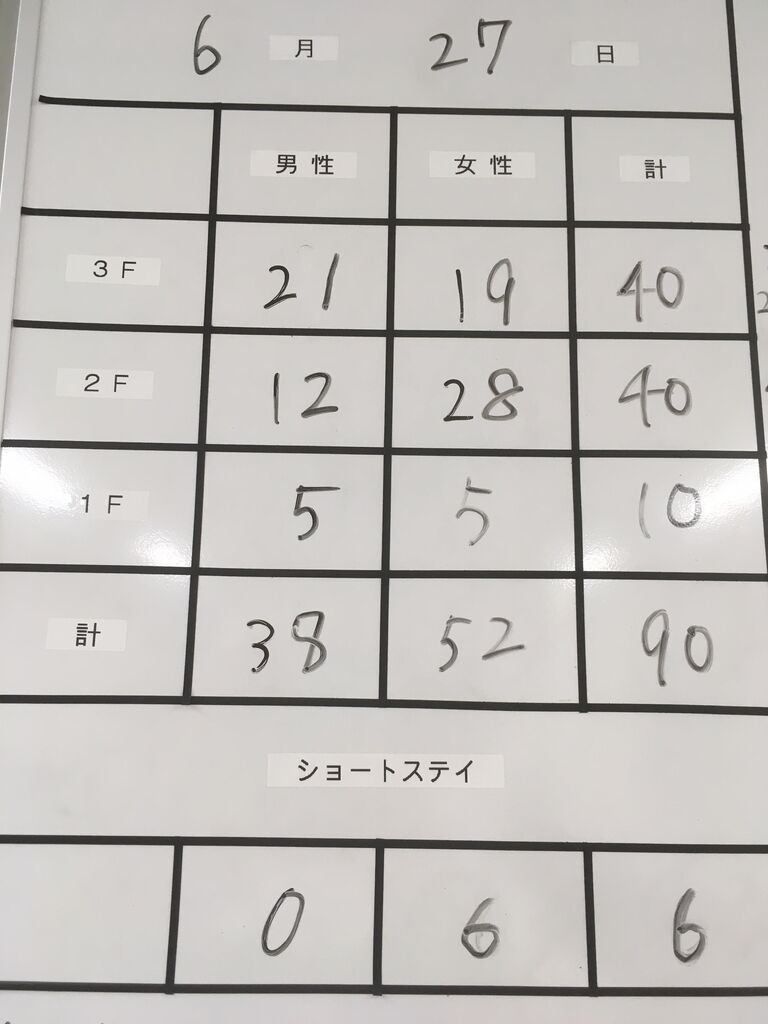 6 月 27 日
男性 女性 計
3F 21 19 40
2F 12 28 40
1F 5 5 10
計 38 52 90
ショートステイ
0 6 6